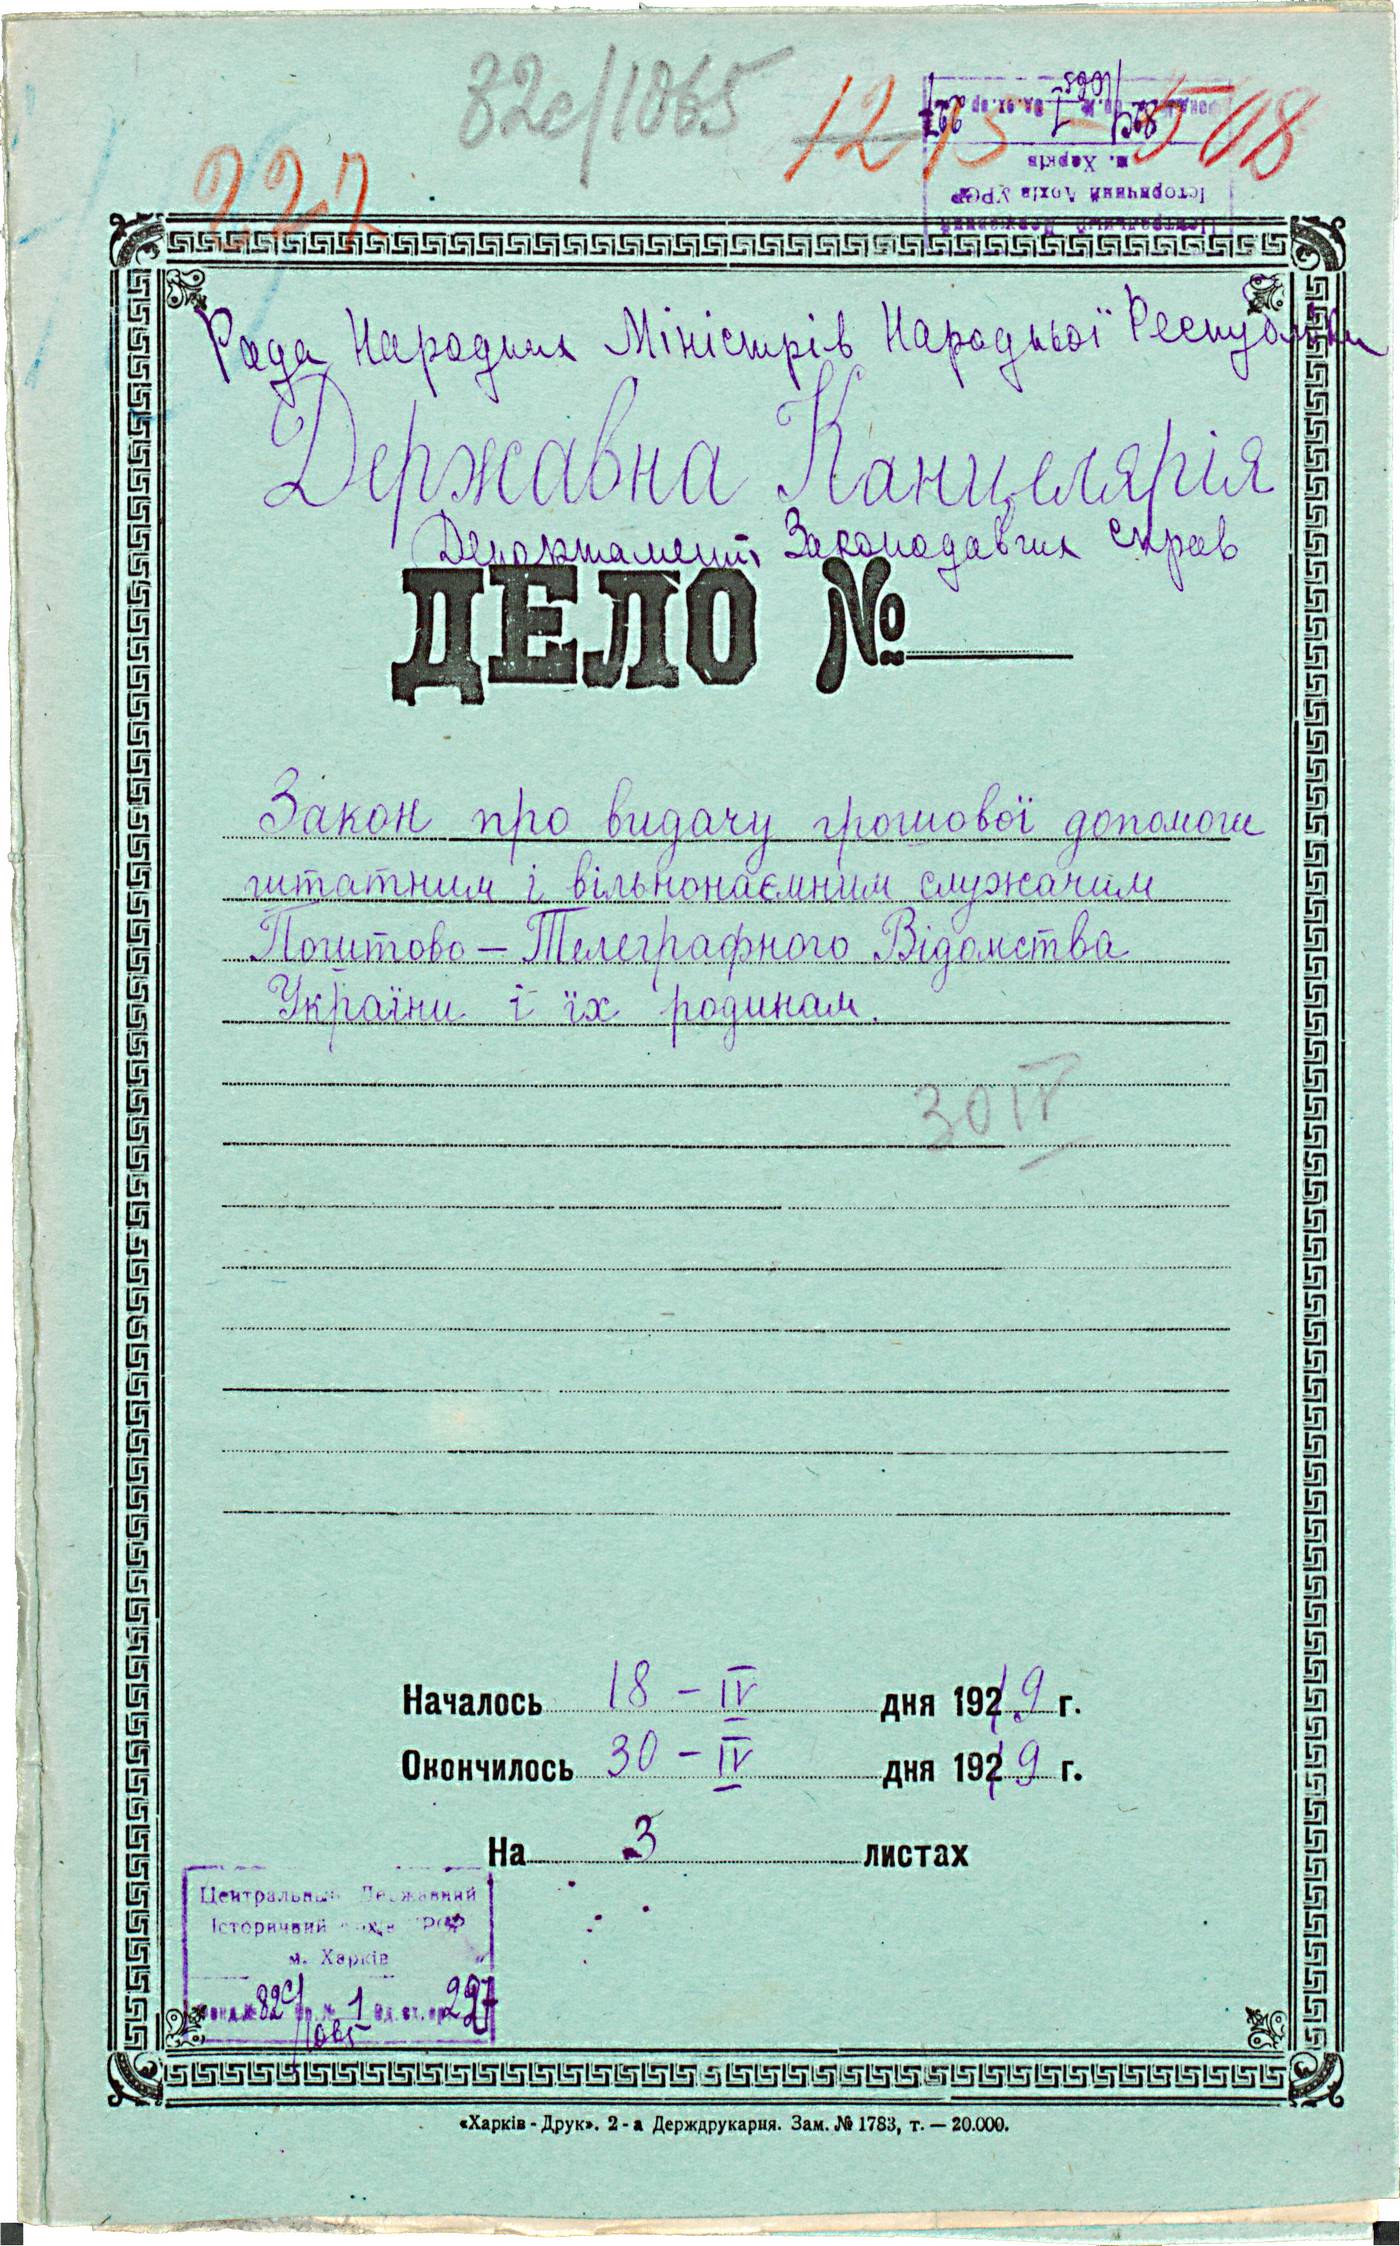 82с/1065
1213-508
227
Центральний Державний
Історичний Архів УРСР
м. Харків
Фонд № 82с/1065 Оп. № 1 Од. зх. ор 227
Рада Народних Міністрів Народньої Республіки
Державна Канцелярія
Департамент Законодавчих справ
ДЕЛО №
Закон про видачу грошової допомоги
штатним і вільнонаємним служачим
Поштово-Телеграфного Відомства
України і їх родинам.
30 IV
Началось 18 - IV дня 1919 г.
Окончилось 30 - IV дня 1919 г.
На 3 листах
Центральний Державний
Історичний Архів УРСР
м. Харків
Фонд № 82с/1065 Оп. № 1 Од. зх. ор 227
«Харків - Друк». 2 - а Держдрукарня. Зам. № 1783, т. — 20.000.